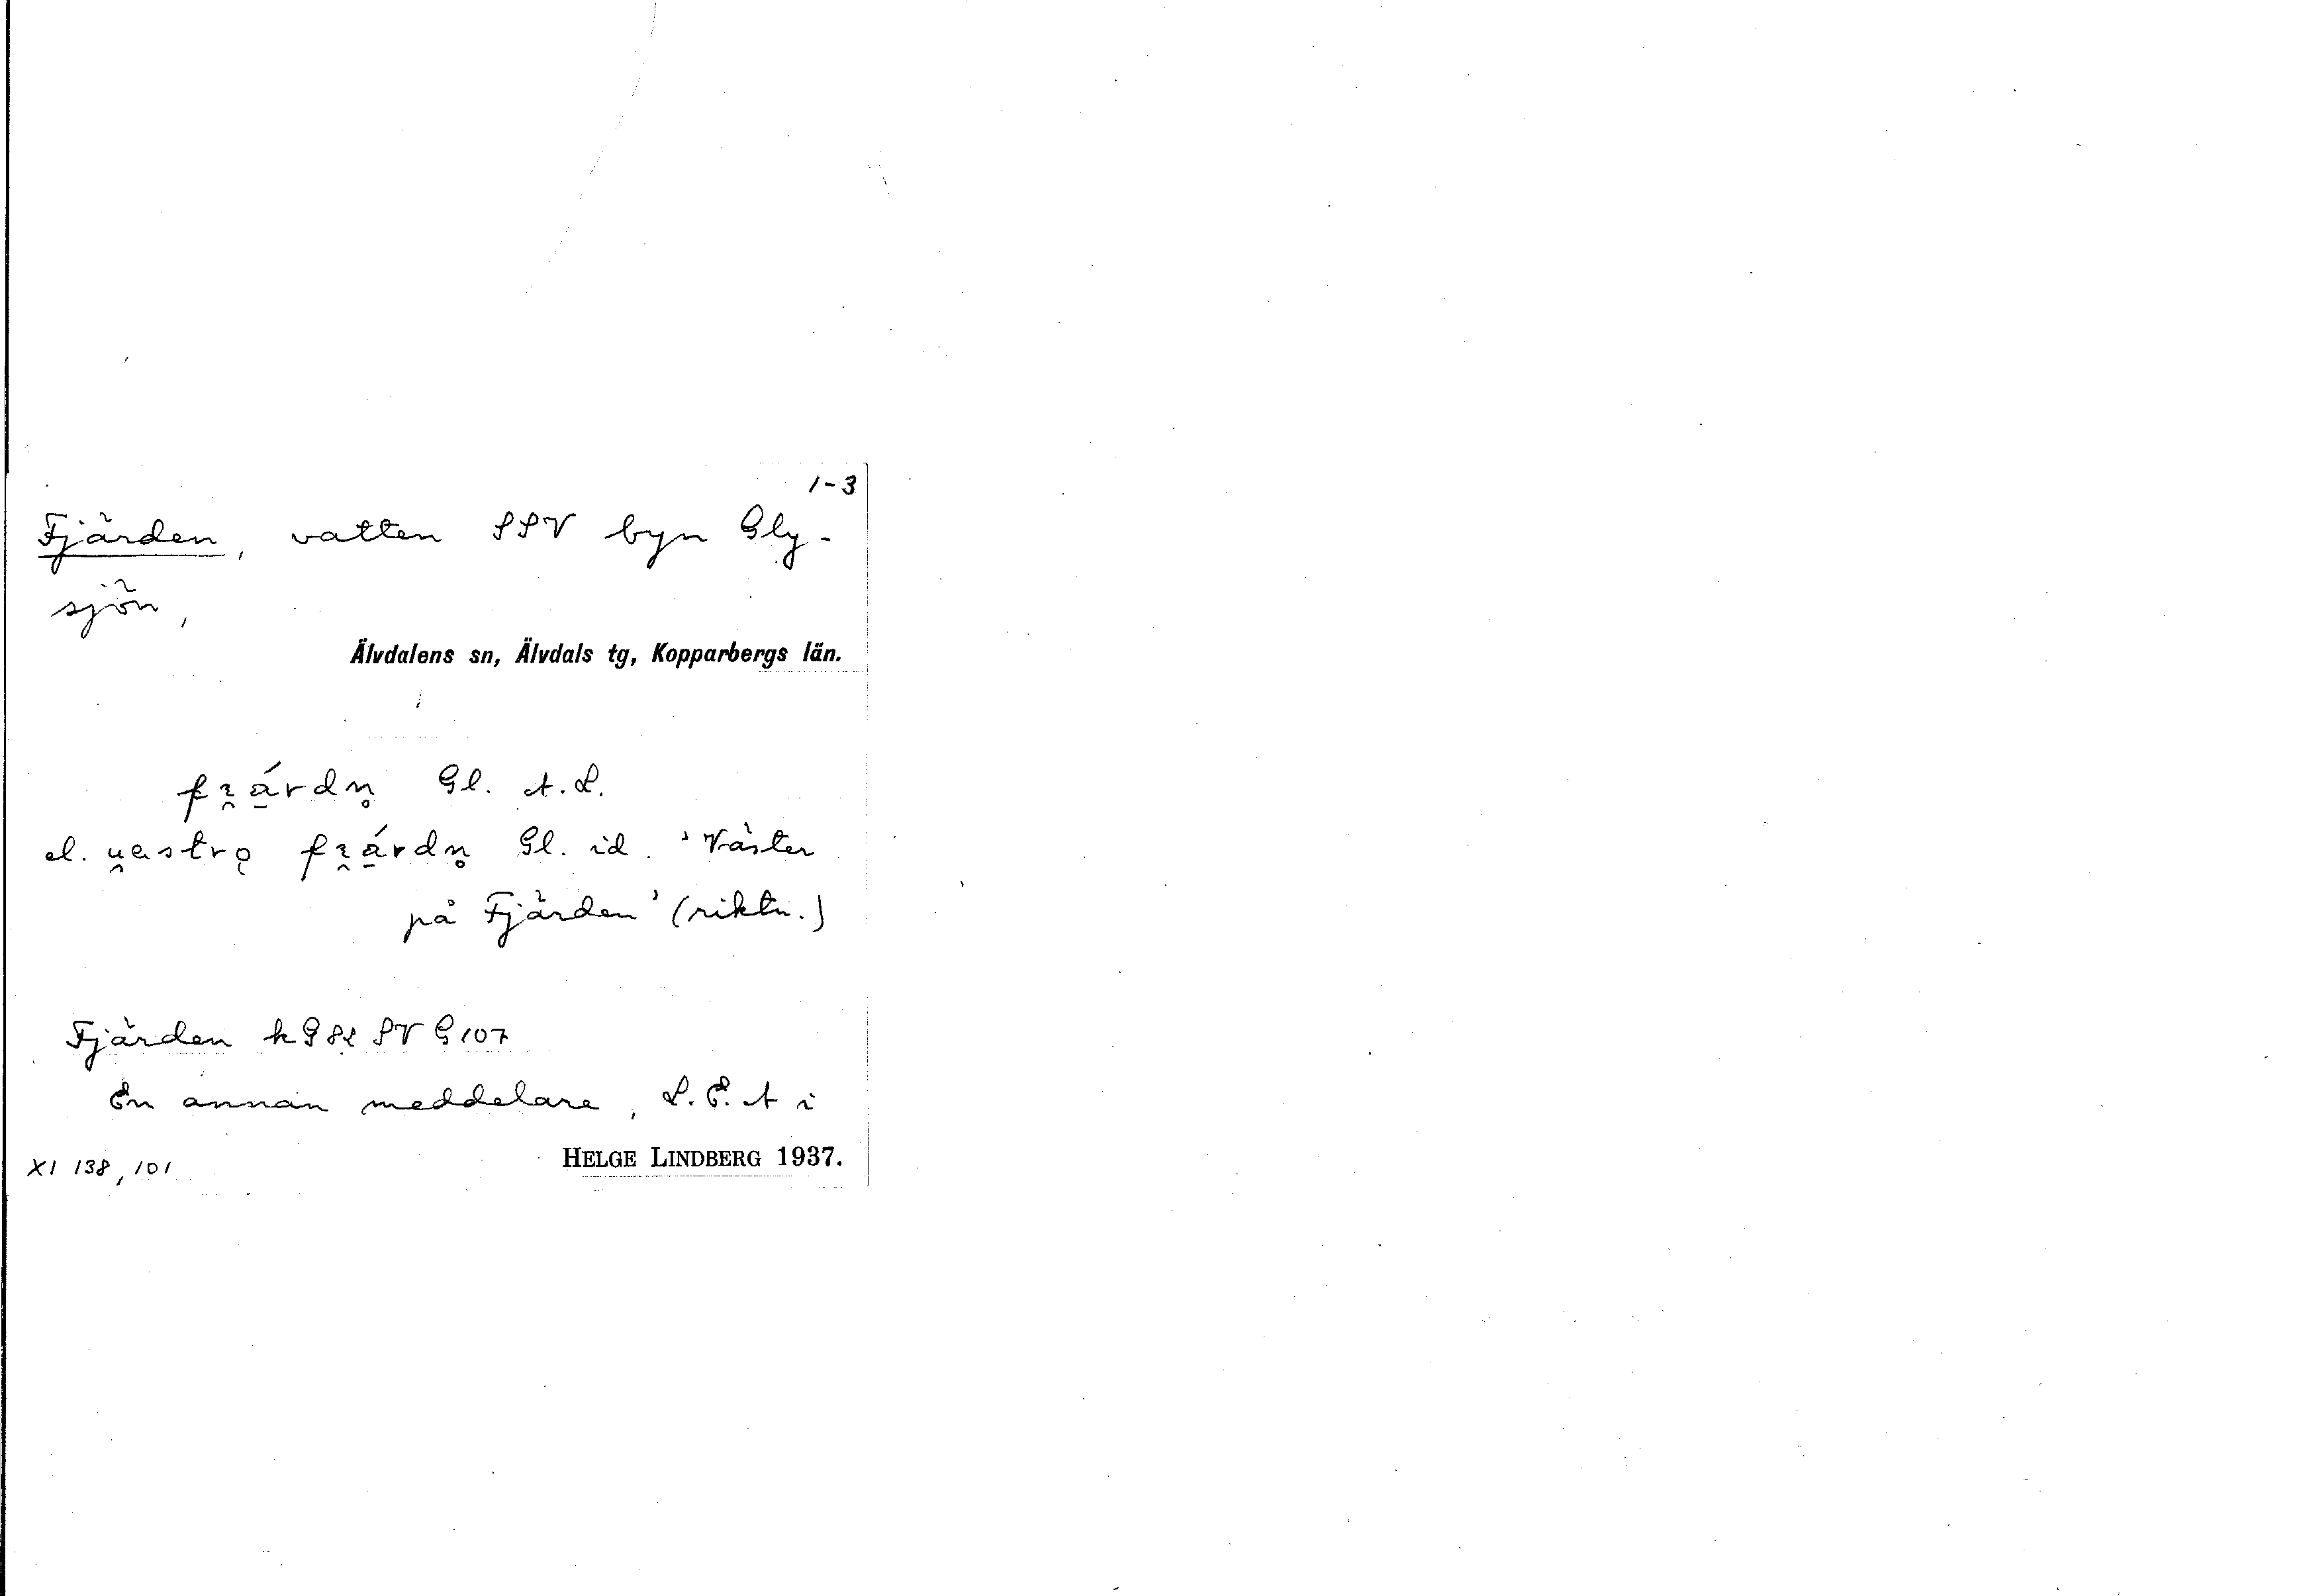 1-3
Fjärden, vatten SSV byn Gly-
sjön,
Älvdalens sn, Älvdals tg, Kopparbergs län.
Gl. A. L.
el. Gl. id. 'Väster
på Fjärden' (riktn.)
Fjärden k G 82 SV G 107
En annan meddelare, L. E. A i
XI 138, 101
HELGE LINDBERG 1937.